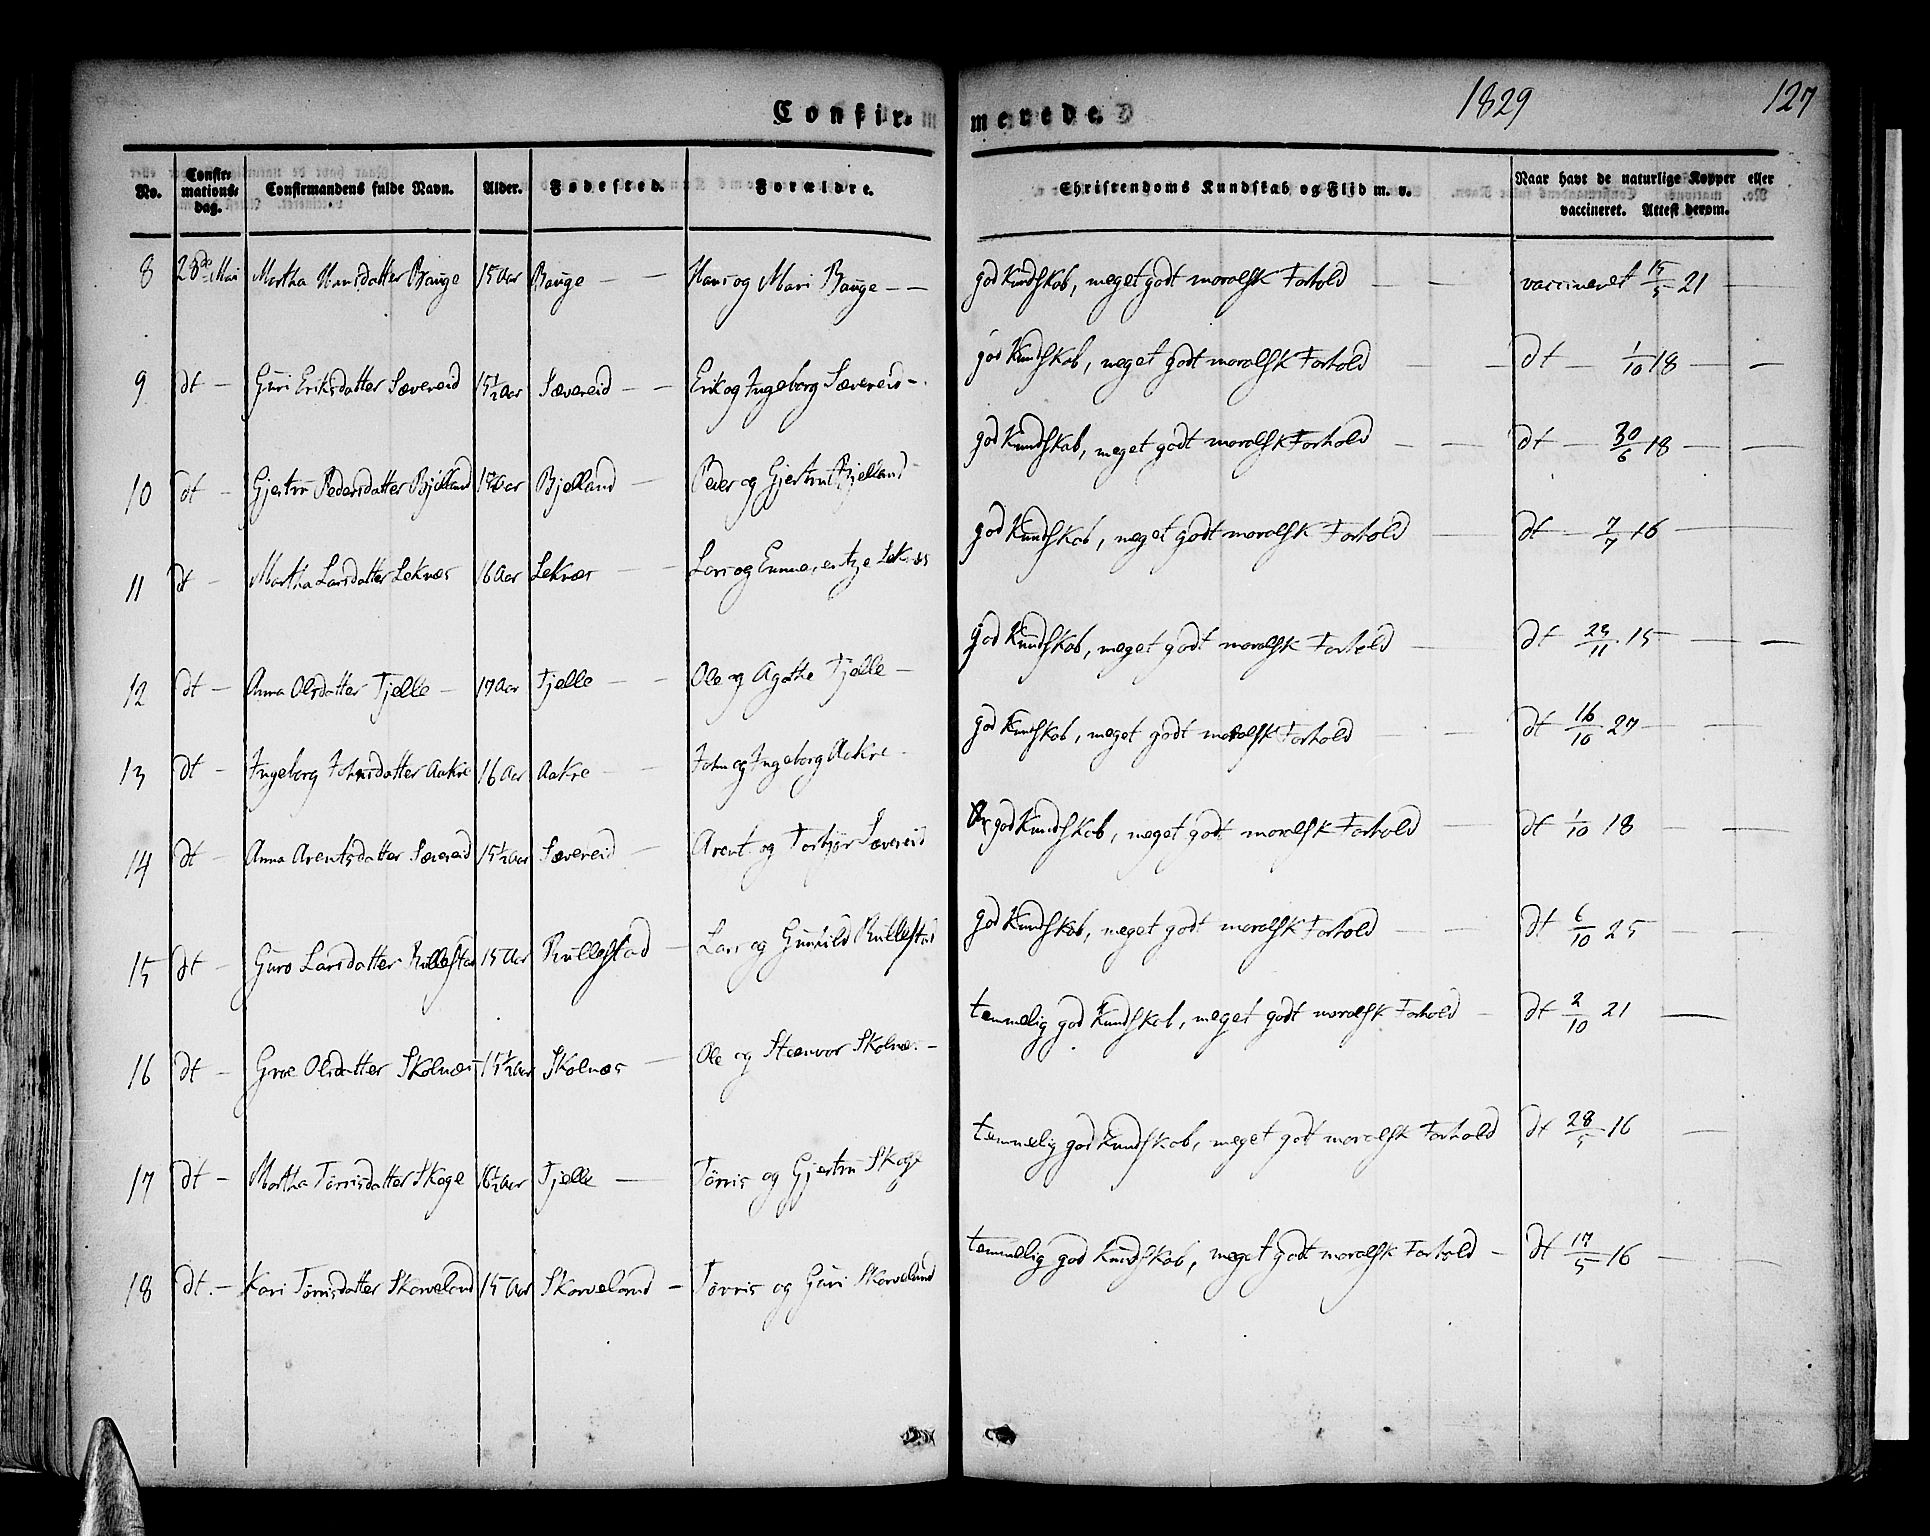 1829
127
Confir-
merede.
No.
Confir-
mations-
dag.
Confirmandens fulde Navn.
Alder.
Fødested.
Forældre.
Christendoms Kundskab og Flid m. v.
Naar havt de naturlige Kopper eller
vaccineret. Attest derom.
8 28de Mai Martha Hansdatter Bauge 15 Aar Bauge — — Hans og Mari Bauge — — god Kundskab, meget godt moralsk Forhold — — vaccineret 15/5 21 —
9 dt — Guri Eriksdatter Sævereid 15 1/2 Aar Sævereid — — Erik og Ingeborg Sævereid — god Kundskab, meget godt moralsk Forhold — — dt — 1/10 18 — —
10 dt — Gjertru Pedersdatter Bjelland Aar Bjelland — Peder og Gjertrut Bjelland — god Kundskab, meget godt moralsk Forhold — — dt — 30/6 18 — —
11 dt — Martha Larsdatter Leknæs 16 Aar Leknæs — — Lars og Leknæs god Kundskab, meget godt moralsk Forhold — dt — 7/7 16 —
12 dt — Anna Olsdatter Fjelle — 17 Aar Fjelle — — Ole og Agathe Fjelle — god Kundskab, meget godt moralsk Forhold — dt 23/11 15 — —
13 dt — Ingeborg Johnsdatter Aakre 16 Aar Aakre — John og Ingeborg Aakre — god Kundskab, meget godt moralsk Forhold — — dt 16/10 27 — —
14 dt — Anna Arentsdatter Sævereid 15 1/2 Aar Sævereid — Arent og Torbjør Sævereid god Kundskab, meget godt moralsk Forhold — dt 1/10 18 — —
15 dt — Guro Larsdatter Rullestad 15 Aar Rullestad — Lars og Gunhild Rullestad god Kundskab, meget godt moralsk Forhold — — dt 6/10 25 — —
16 dt — Groe Olsdatter Skolnæs 15 1/2 Aar Skolnæs — Ole og Steenvor Skolnæs — temmelig god Kundskab, meget godt moralsk Forhold — dt 2/10 21 —
17 dt — Martha Tørrisdatter Skoge 16 1/2 Aar Fjelle — Tørris og Gjertru Skoge temmelig god Kundskab, meget godt moralsk Forhold dt 28/5 16 —
18 dt. — Kari Tørrisdatter Skorveland 15 Aar Skorveland — Tørris og Guri Skorveland temmelig god Kundskab, meget godt moralsk Forhold — dt 17/5 16 — —